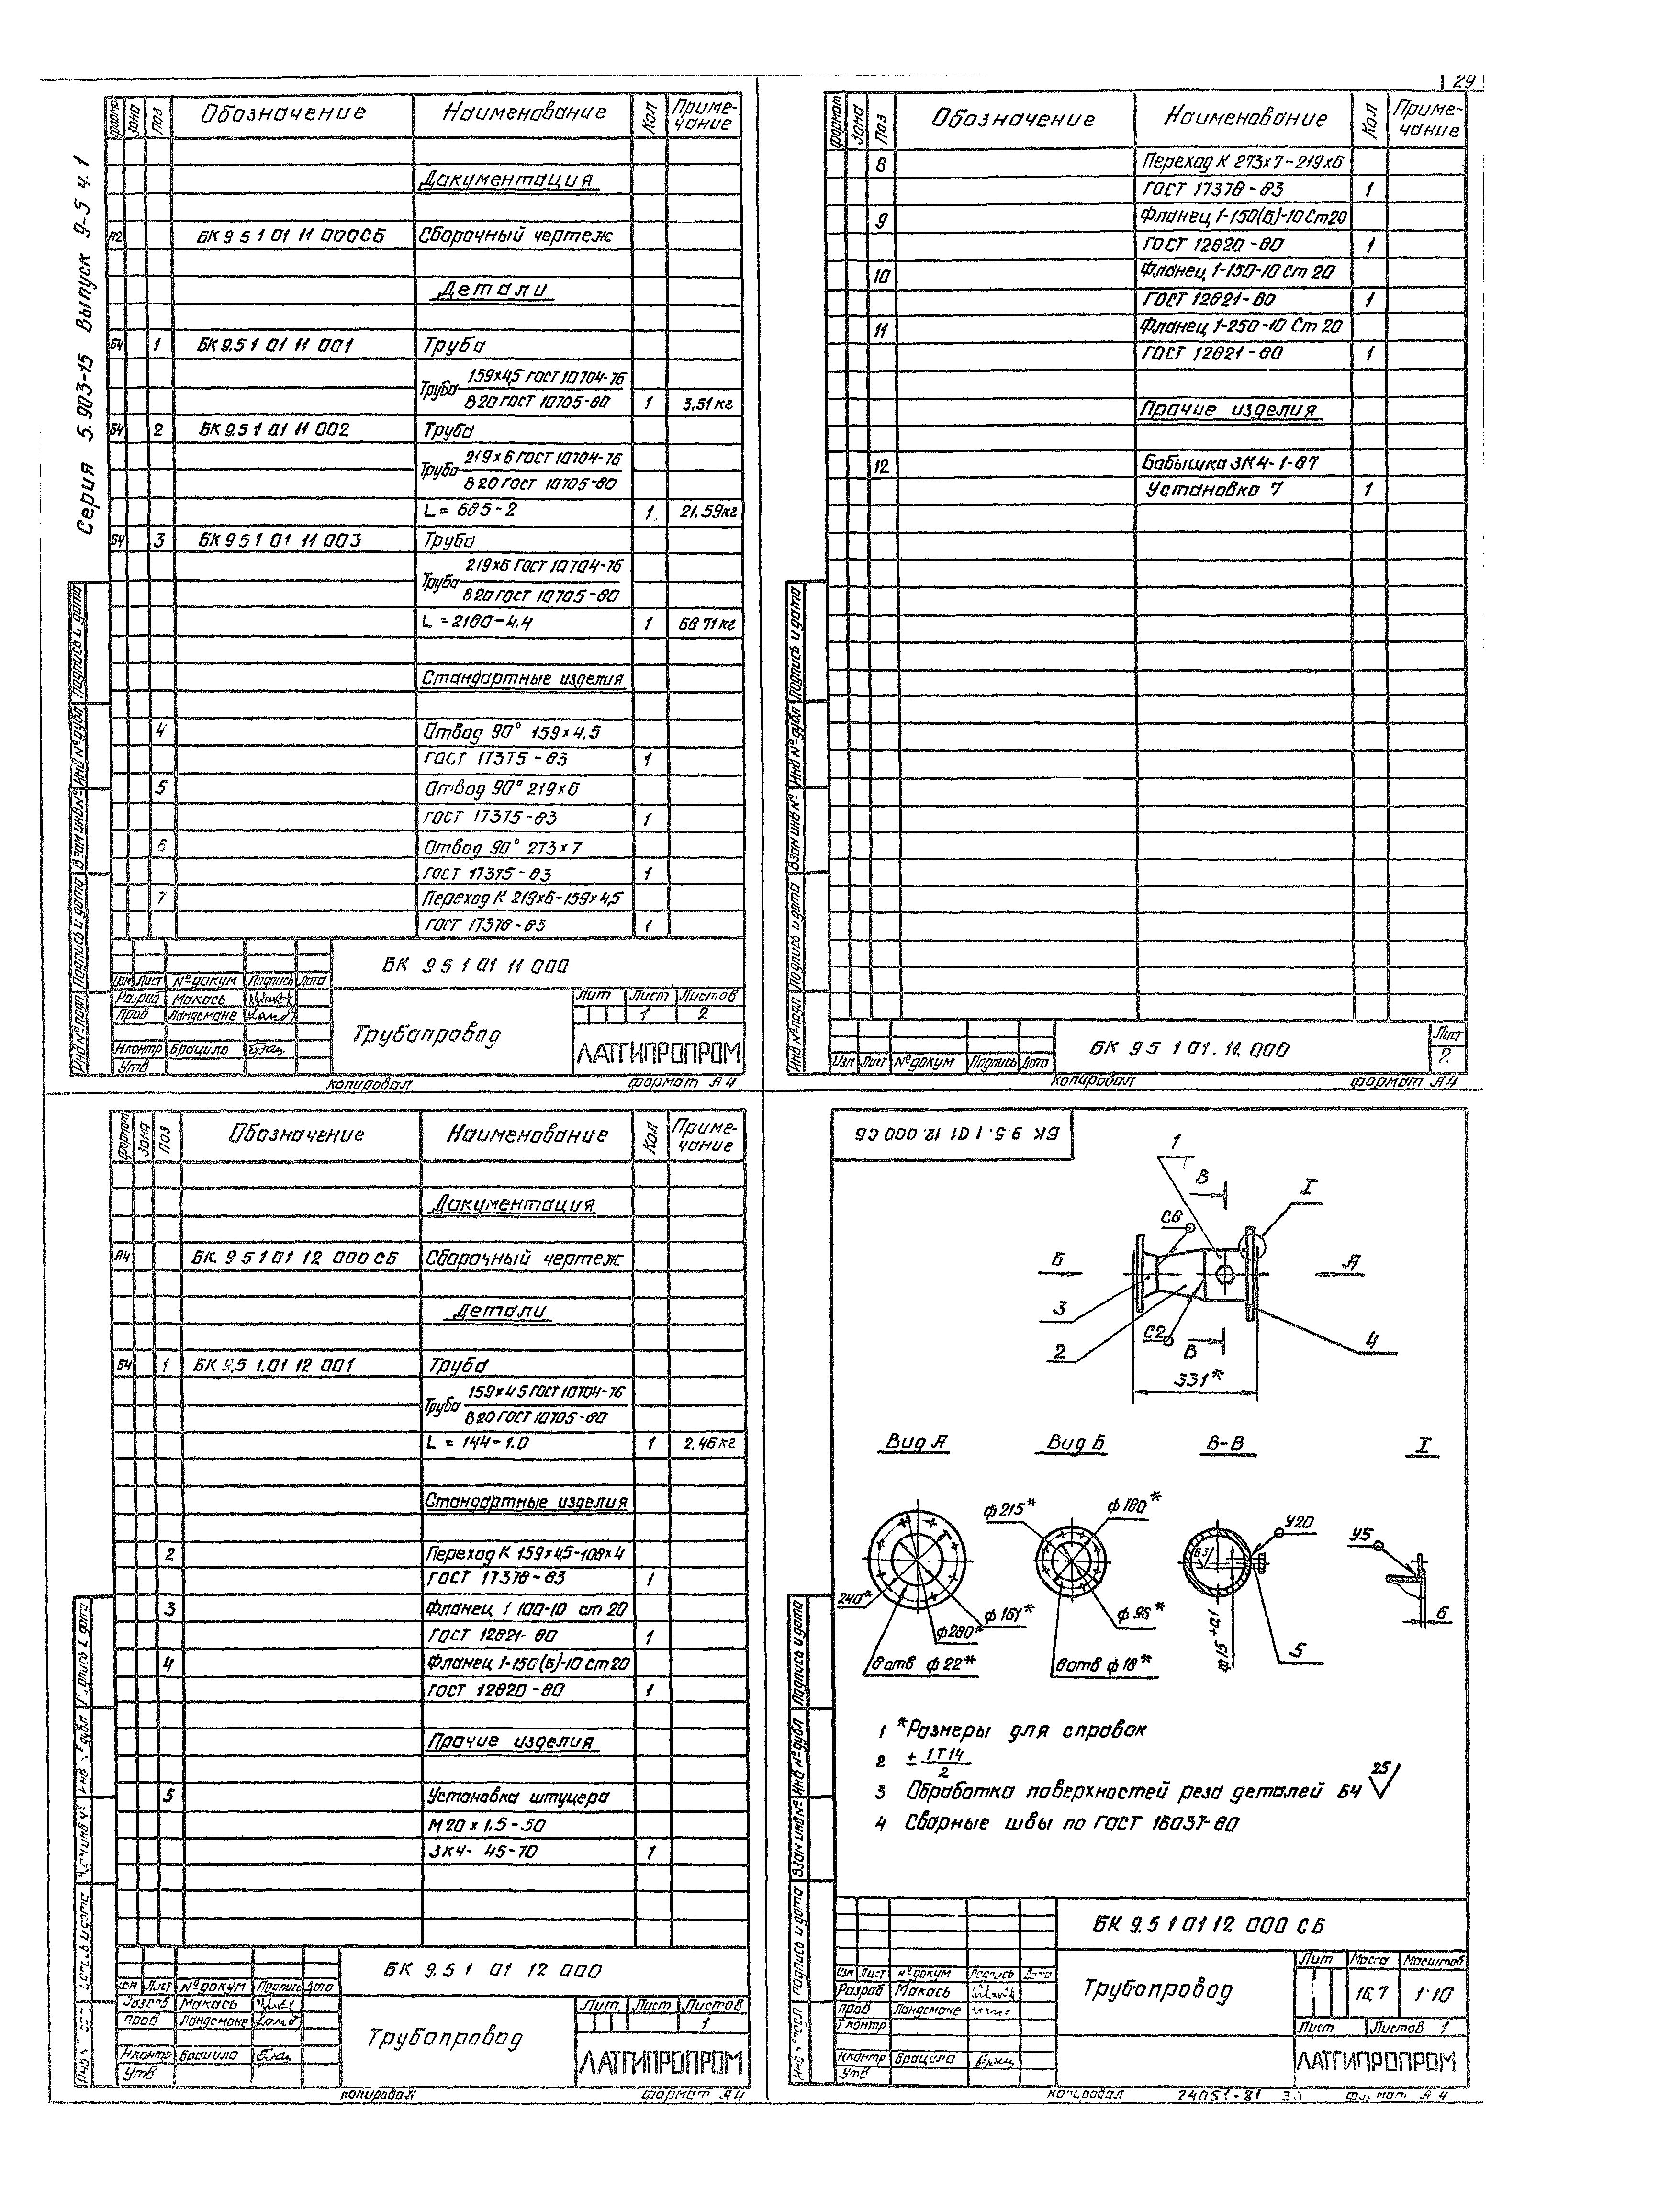 29
Серия 5.903-15 Выпуск 9-5 ч.1
формат Зона Поз Обозначение Наименование Кол Примечание
Документация
А2 БК 9 5 1 01 11 000СБ Сборочный чертеж
Детали
БЧ 1 БК 9.5 1 01 11 001 Труба
Труба 159×4,5 ГОСТ 10704-76
В 20 ГОСТ 10705-80 1 3,51 кг
БЧ 2 БК 9.5 1 01 11 002 Труба
Труба 219×6 ГОСТ 10704-76
В 20 ГОСТ 10705-80
L = 685-2 1 21.59кг
БЧ 3 БК 9 5 1 01 11 003 Труба
Труба 219×6 ГОСТ 10704-76
В 20 ГОСТ 10705-80
L = 2180-4,4 1 68 71 кг
Стандартные изделия
4 Отвод 90° 159×4,5
ГОСТ 17375-83 1
5 Отвод 90° 219×6
ГОСТ 17375-83 1
6 Отвод 90° 273×7
ГОСТ 17375-83 1
7 Переход К 219×6-159×4,5
ГОСТ 17378-83 1
БК 9 5 1 01 11 000
Изм Лист № докум Подпись Дата
Разраб Макась
Пров Ландсмане
Н контр Брацило
Утв
Трубопровод
Лит Лист Листов
1 2
ЛАТГИПРОПРОМ
Инв № подл Подпись и дата Взам инв № Инв № дубл Подпись и дата
копировал формат А4
формат Зона Поз Обозначение Наименование Кол Примечание
8 Переход К 273×7-219×6
ГОСТ 17378-83 1
9 Фланец 1-150(Б)-10 Ст20
ГОСТ 12820-80 1
10 Фланец 1-150-10 Ст 20
ГОСТ 12821-80 1
11 Фланец 1-250-10 Ст 20
ГОСТ 12821-80 1
Прочие изделия
12 Бобышка ЗК4-1-87
Установка 7 1
БК 9 5 1 01. 11. 000
Лист
2
Изм Лист № докум Подпись Дата
Инв № подл Подпись и дата Взам инв № Инв № дубл Подпись и дата
копировал формат А4
формат Зона Поз Обозначение Наименование Кол Примечание
Документация
А4 БК. 9 5 1 01 12 000 СБ Сборочный чертеж
Детали
БЧ 1 БК 9,5 1.01 12 001 Труба
Труба 159×4 5 ГОСТ 10704-76
В 20 ГОСТ 10705-80
L = 144-1.0 1 2,46 кг
Стандартные изделия
2 Переход К 159×4,5-108×4
ГОСТ 17378-83 1
3 Фланец 1 100-10 ст 20
ГОСТ 12821-80 1
4 Фланец 1-150(Б)-10 ст 20
ГОСТ 12820-80 1
Прочие изделия
5 Установка штуцера
М 20 × 1.5-50
ЗК4- 45-70 1
БК 9.5 1 01 12 000
Изм Лист № докум Подпись Дата
Разраб Макась
Пров Ландсмане
Н контр Брацило
Утв
Трубопровод
Лит Лист Листов
1
ЛАТГИПРОПРОМ
копировал формат А4
БК 9.5.1 01 12.000 СБ
1
В
I
С6
Б
А
3
2
С2
В
4
331*
Вид А Вид Б В-В I
ф 215* ф 180* У20 У5
240* ф 161* ф280* ф 96* ф15 +0,1 5 6
8 отв ф 22* 8 отв ф 18*
1 *Размеры для справок
2 ± IT14/2
3 Обработка поверхностей реза деталей БЧ 25
4 Сварные швы по ГОСТ 16037-80
БК 9.5 1 01 12 000 СБ
Изм Лист № докум Подпись Дата
Разраб Макась
Пров Ландсмане
Т контр
Н контр Брацило
Утв
Трубопровод
Лит Масса Масштаб
16,7 1:10
Лист Листов 1
ЛАТГИПРОПРОМ
Подпись и дата Взам инв № Инв № дубл Подпись и дата
копировал 24051-81 формат А4